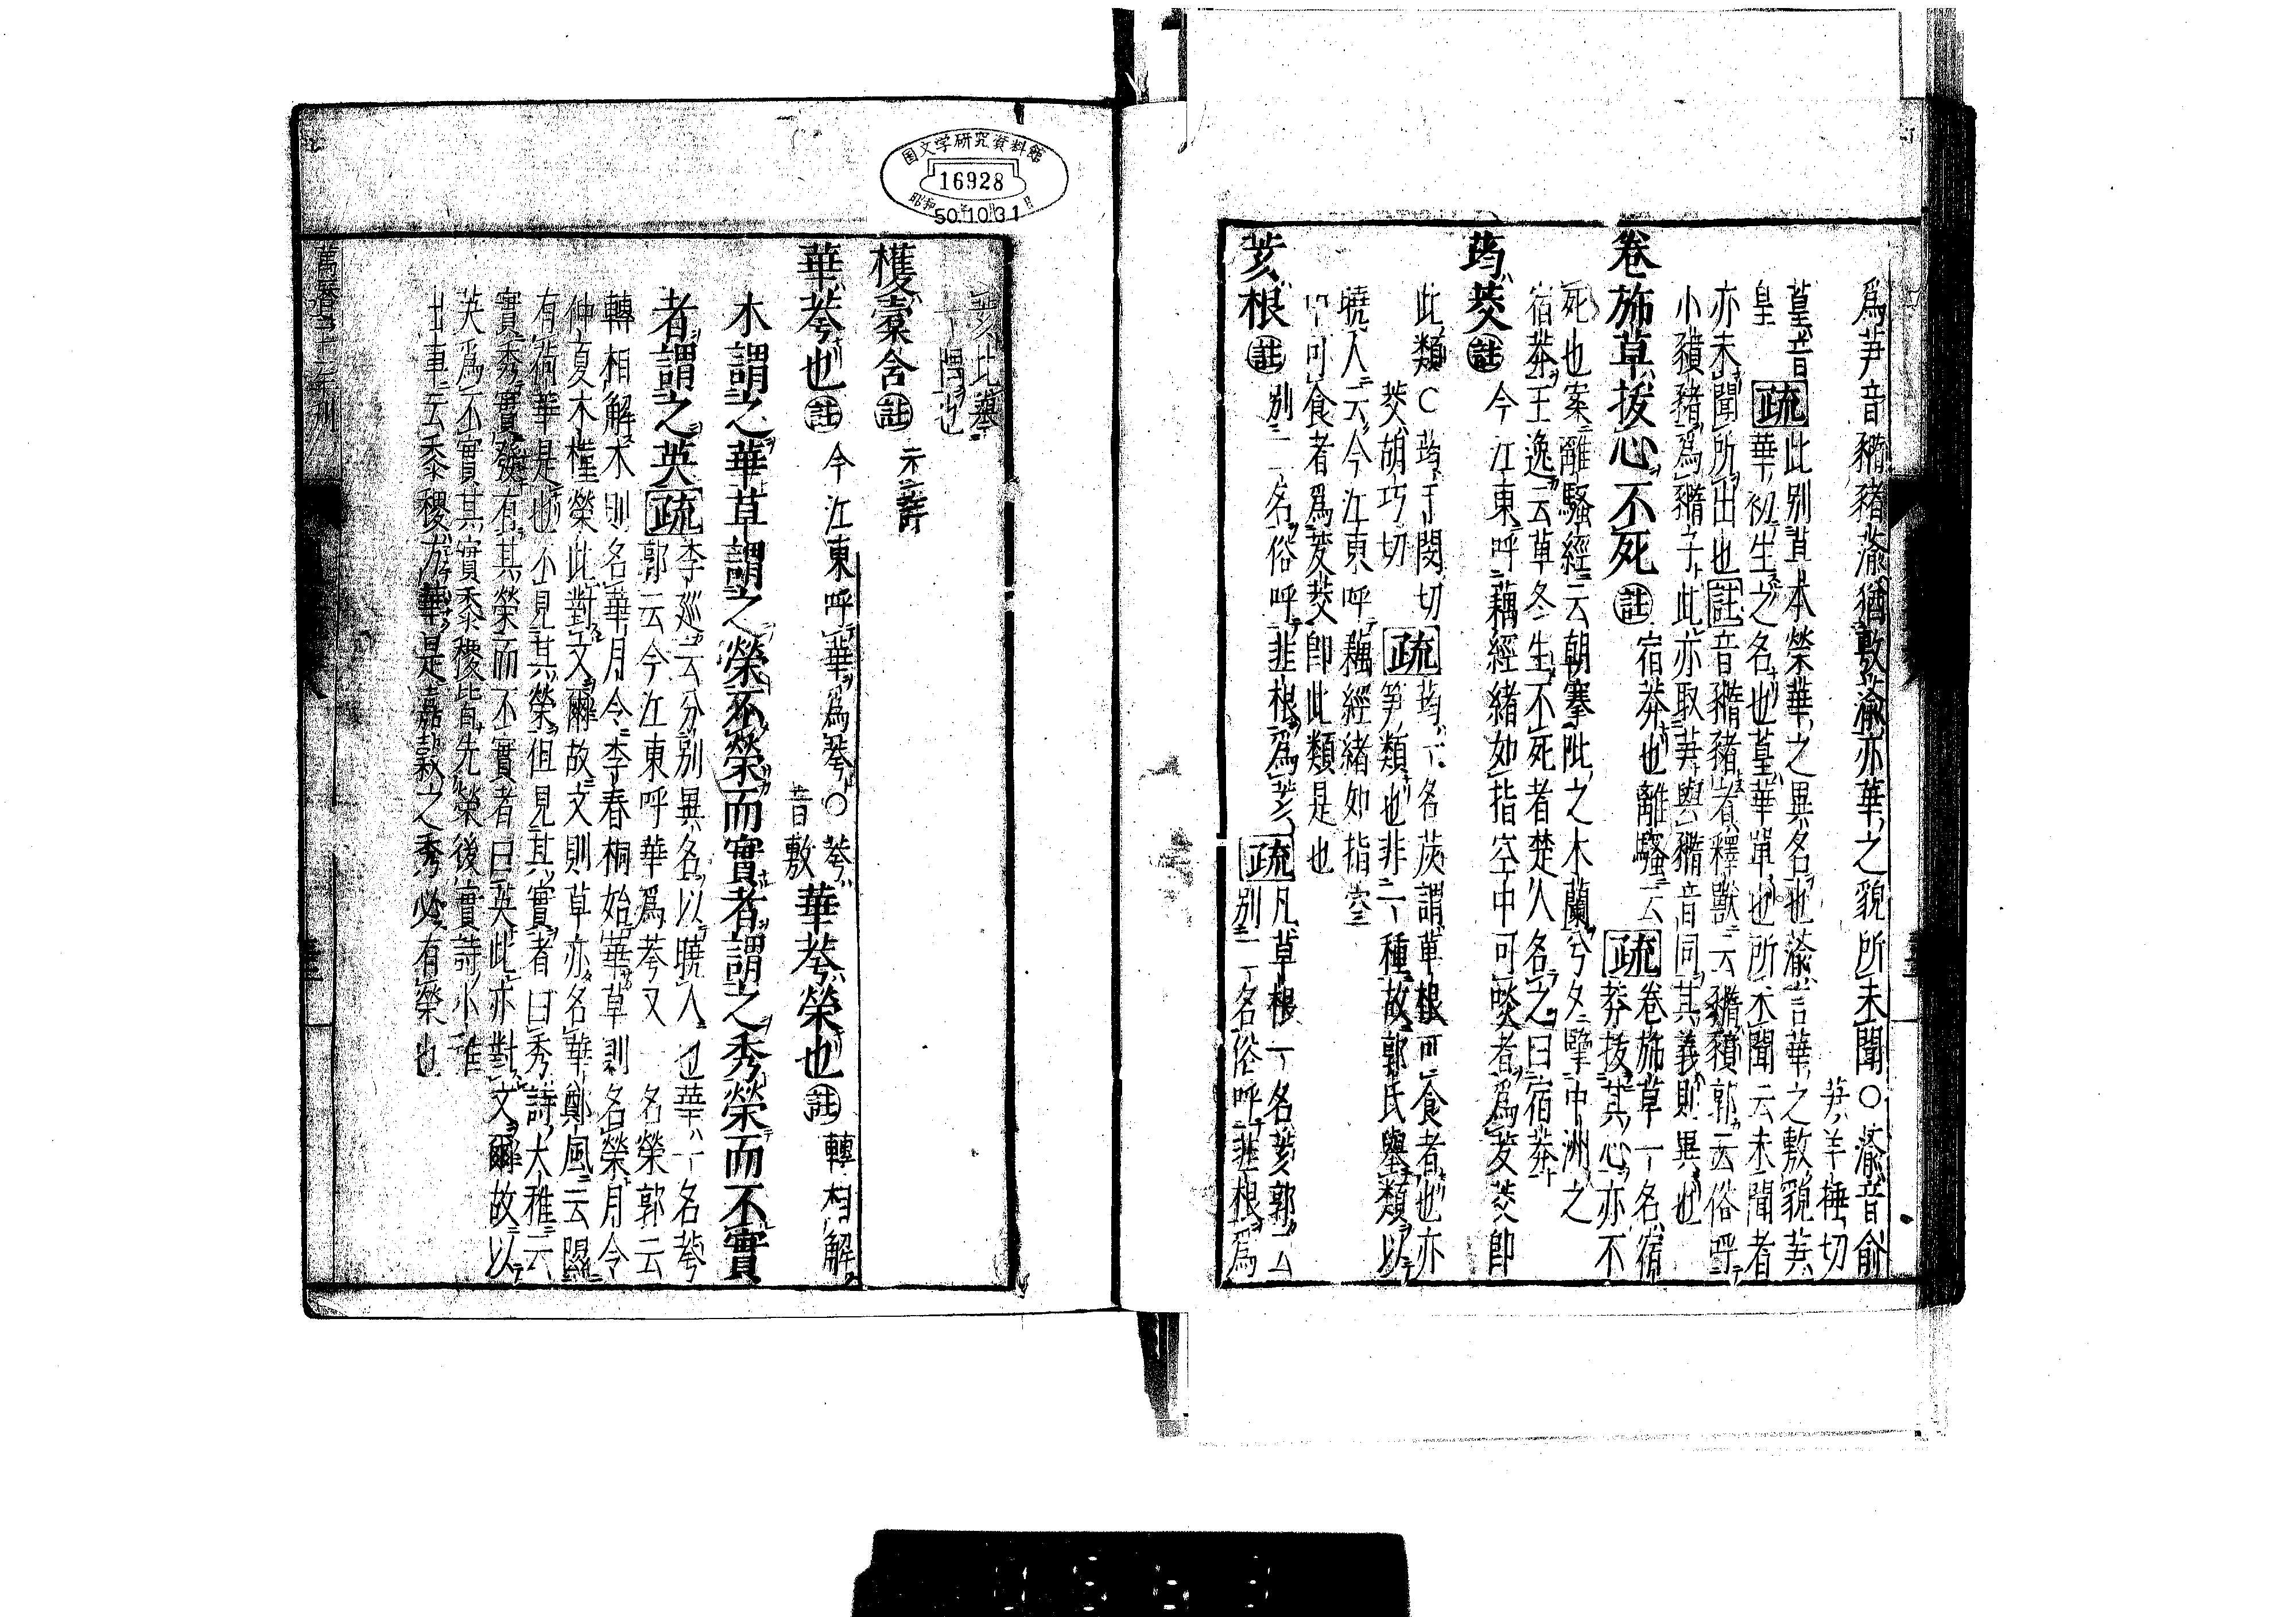 爲芛音豬豬蕍猶敷蕍亦華之貌所未聞○蕍音俞
芛羊捶切
葟音
皇
疏
此別草木榮華之異名也蕍言華之敷貌芛
華初生之名也葟華皇也所未聞云未聞者
亦未聞所出也註音豬豬者釋獸云豬豶郭云俗呼
小豶豬爲豬子此亦取芛與豬音同其義則異也
卷施草拔心不死註
宿莽也離騷云
疏
卷施草一名宿
莽拔其心亦不
死也案離騷經云朝搴阰之木蘭兮夕擥中洲之
宿莽王逸云草冬生不死者楚人名之曰宿莽
荺茭註
今江東呼藕經緒如指空中可啖者爲茇茭即
此類○荺于閔切
茭胡巧切
疏
荺一名茭謂草根可食者也亦
筍類也非一種故郭氏舉類以
曉人云今江東呼藕經緒如指空
中可食者爲茇茭即此類是也
荄根註
別二名俗呼韭根爲荄
疏
凡草根一名荄郭云
別二名俗呼韭根爲
荄比舉
一隅也
欔橐含註
未詳
華荂也註
今江東呼華爲荂○荂
音敷
華荂榮也註
轉相解
木謂之華草謂之榮不榮而實者謂之秀榮而不實
者謂之英疏
李巡云分別異名以曉人也華一名荂
郭云今江東呼華爲荂又一名榮郭云
轉相解木則名華月令季春桐始華草則名榮月令
仲夏木槿榮此對文爾故文則草亦名華鄭風云隰
有荷華是也不見其榮但見其實者曰秀詩大雅云
實秀實發有其榮而不實者曰英此亦對文爾故以
英爲不實其實黍稷皆先榮後實詩小雅
出車云黍稷方華是嘉穀之秀必有榮也
国文学研究資料館
16928
昭和
50.10.31